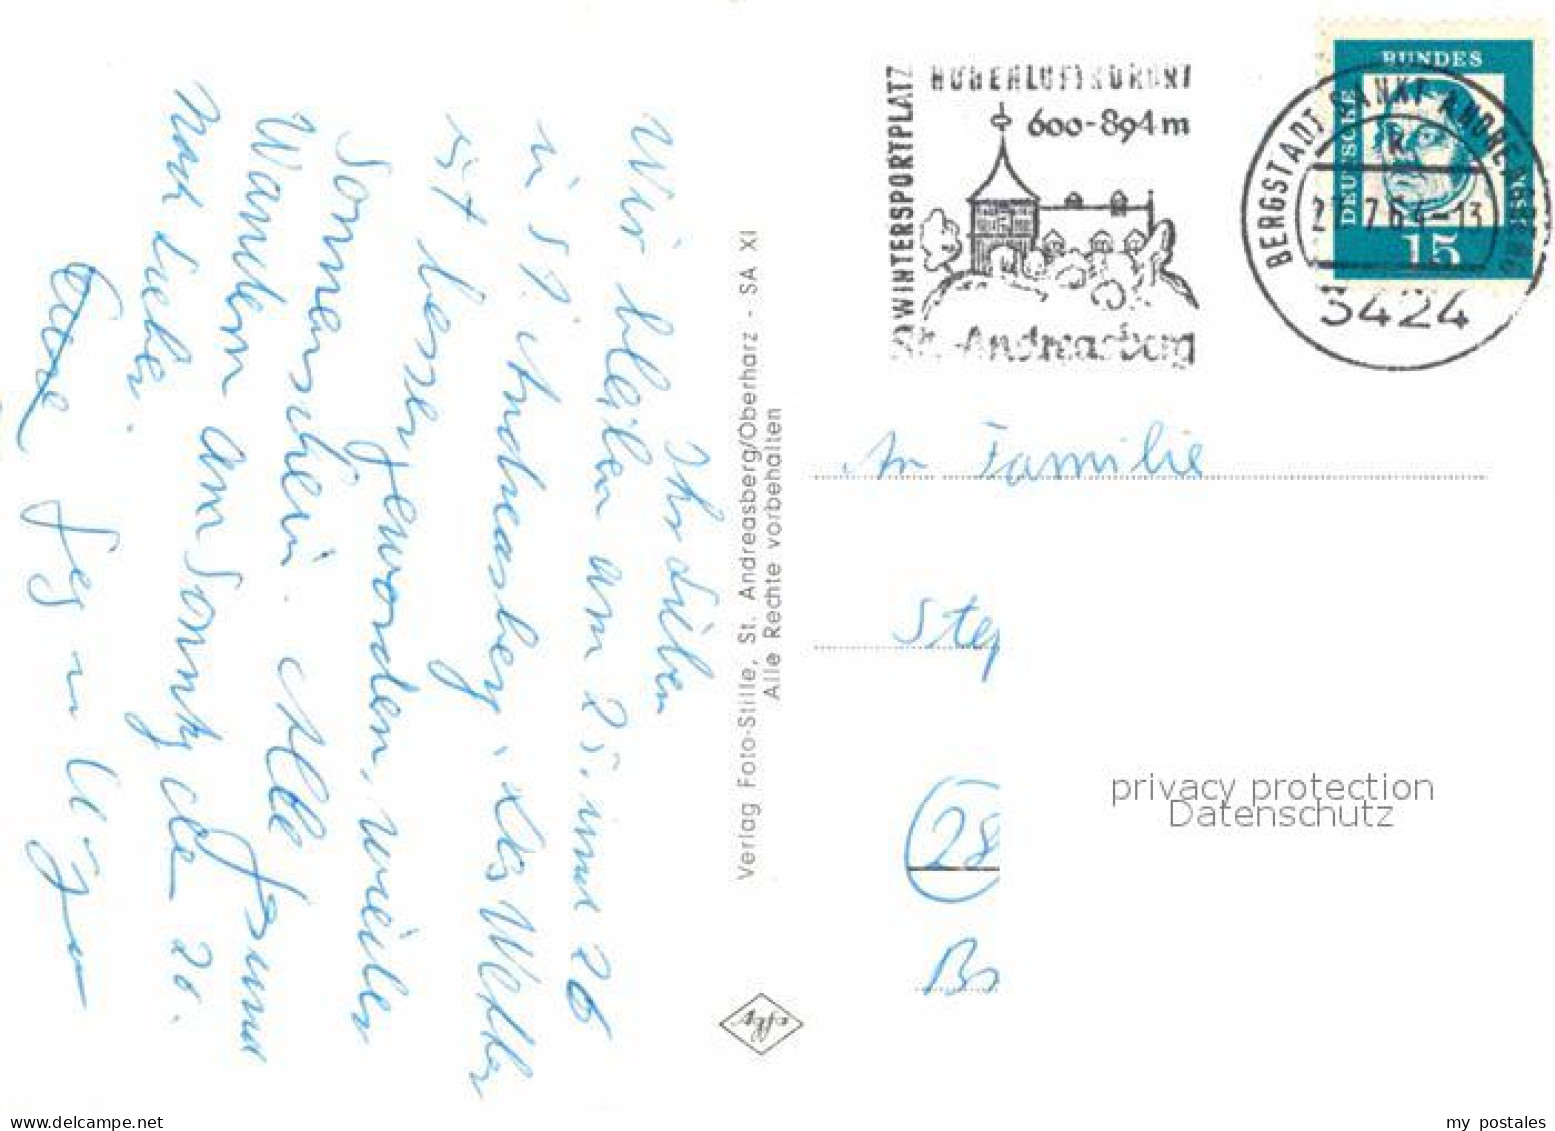 Ihr Lieben
Wir bleiben am 25. und 26
in St. Andreasberg. Das Wetter
ist besser geworden, wieder
Sonnenschein. Alle gesund
Wandern am Sonntag
nach
HÖHENLUFTKURORT
600-894m
WINTERSPORTPLATZ
St.-Andreasberg
BERGSTADT SANKT ANDREASBERG
k
7.64-13
3424
DEUTSCHE
BUNDES
15
Verlag Foto-Stille, St. Andreasberg/Oberharz - SA XI
Alle Rechte vorbehalten
An Familie
Step
(28
privacy protection
Datenschutz
my postales
www.delcampe.net